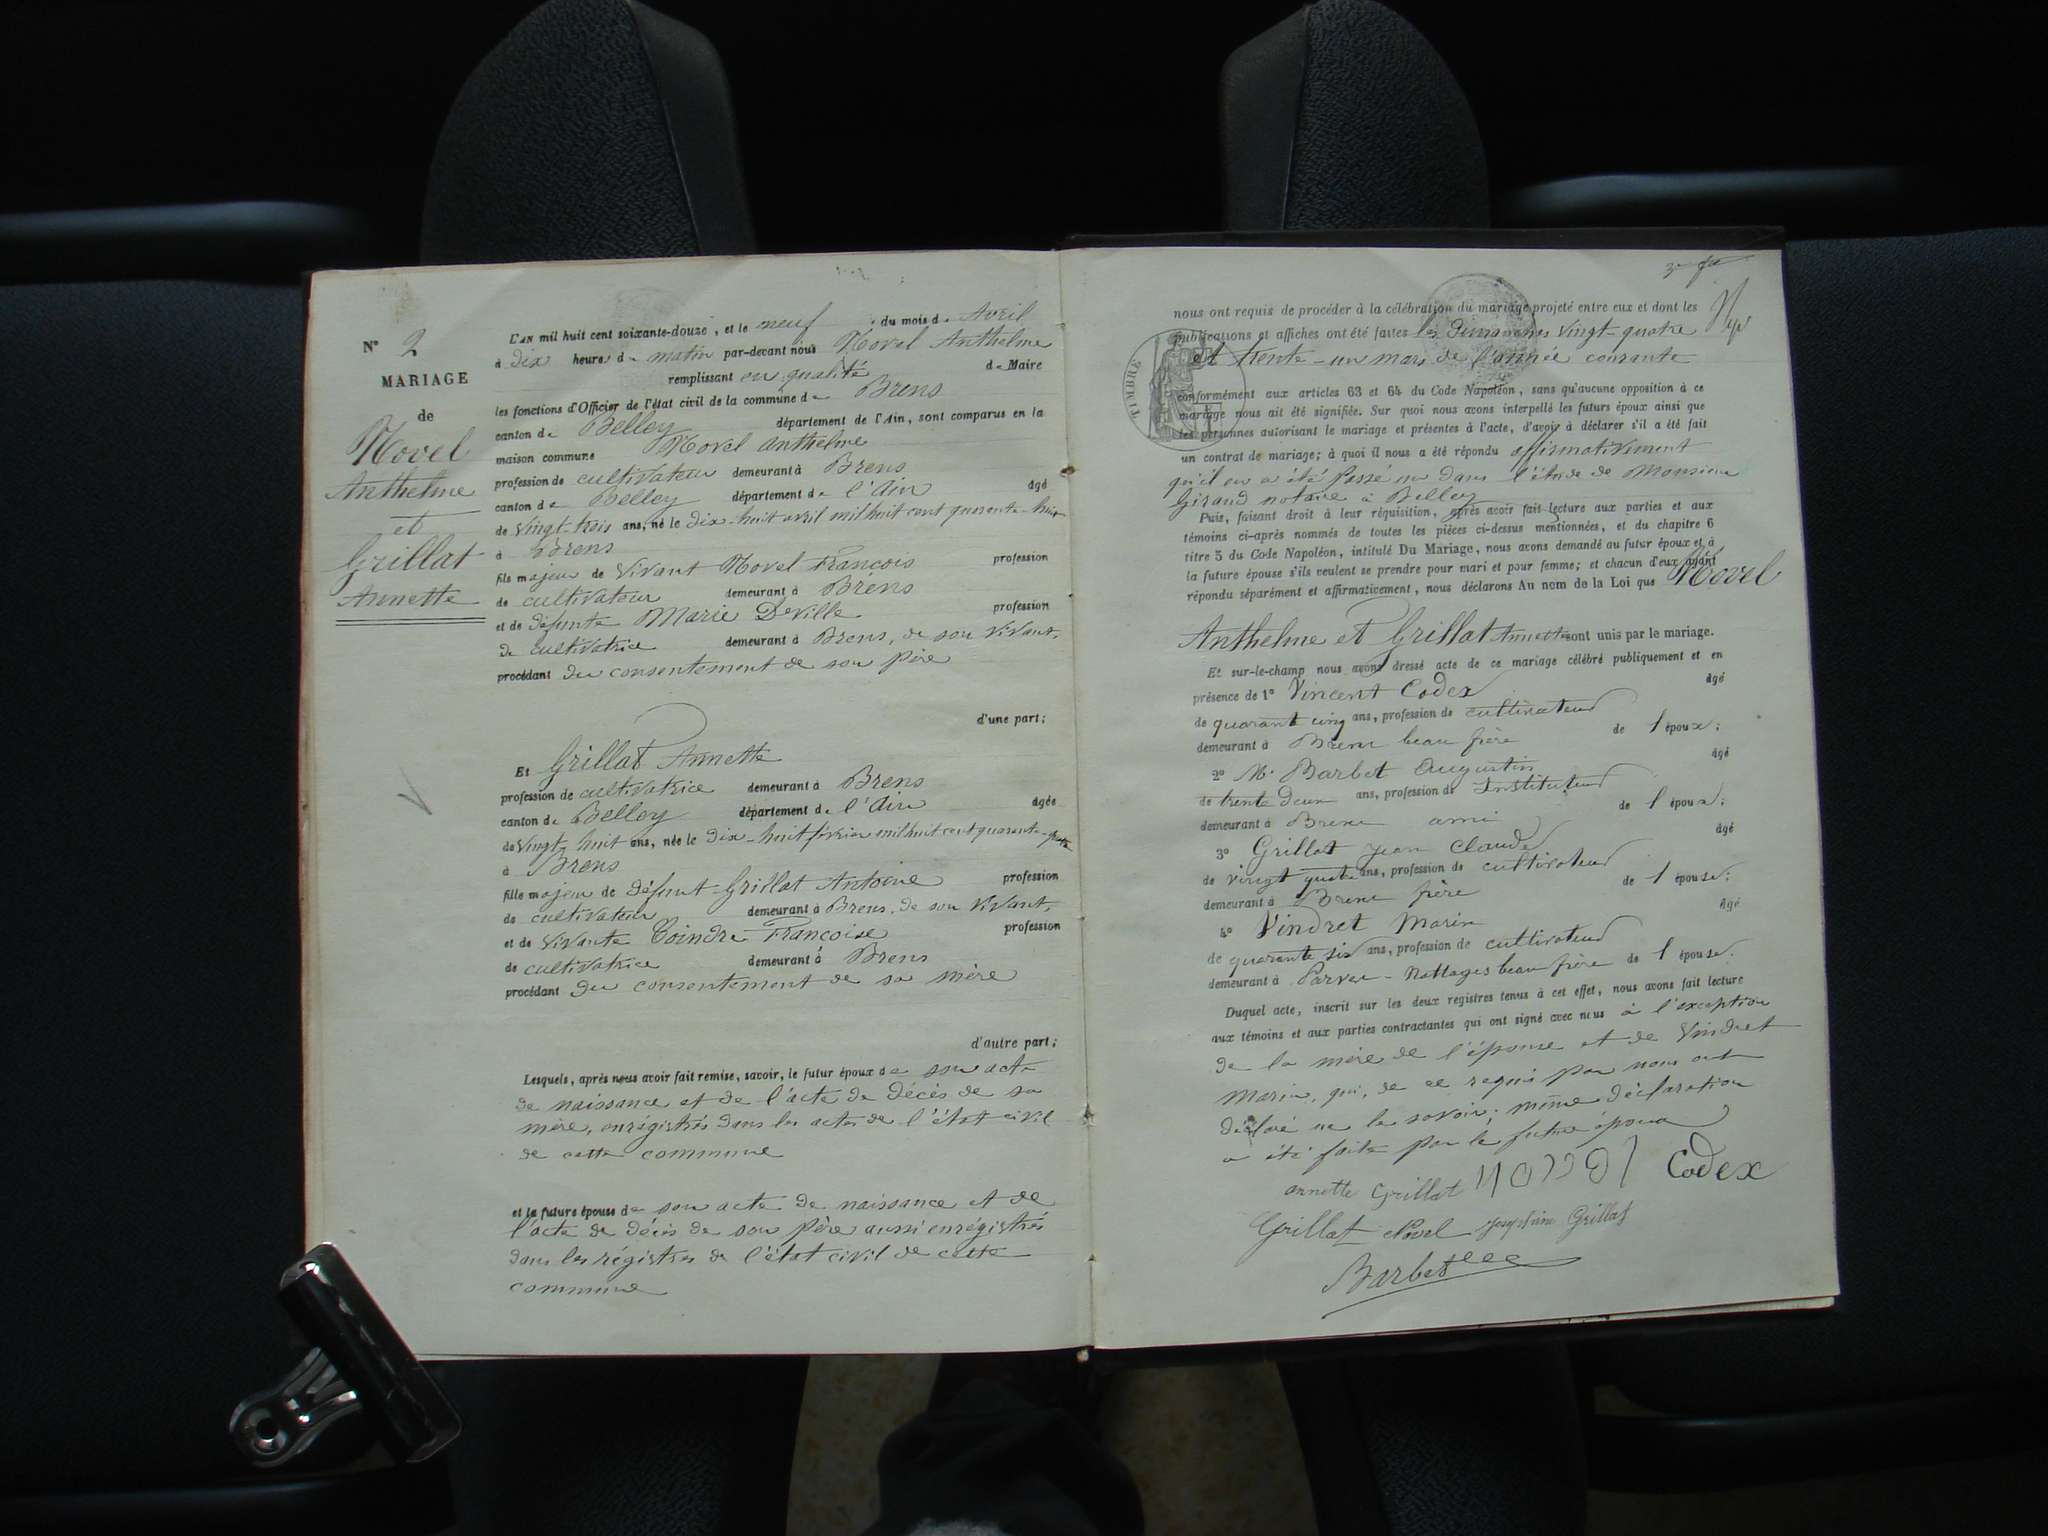 N° 2
MARIAGE
de
Novel
Anthelme
et
Grillat
Annette
L'AN mil huit cent soixante-douze, et le neuf du mois d. Avril
à dix heures d. matin par-devant nous Novel Anthelme
remplissant en qualité de Maire
les fonctions d'Officier de l'état civil de la commune de Brens
canton de Belley département de l'Ain, sont comparus en la
maison commune Novel Anthelme
profession de cultivateur demeurant à Brens
canton de Belley département de l'Ain âgé
de vingt-trois ans, né le dix-huit avril mil huit cent quarante-huit
à Brens
fils majeur de vivant Novel Francois profession
de cultivateur demeurant à Brens
et de défunte Marie Deville profession
de cultivatrice demeurant à Brens, de son vivant,
procédant du consentement de son père
d'une part;
Et Grillat Annette
profession de cultivatrice demeurant à Brens
canton de Belley département de l'Ain âgée
de vingt-huit ans, née le dix-huit février mil huit cent quarante-quatre
à Brens
fille majeur de défunt Grillat Antoine profession
de cultivateur demeurant à Brens, de son vivant,
et de vivante Coindre Françoise profession
de cultivatrice demeurant à Brens
procédant du consentement de sa mère
d'autre part;
Lesquels, après nous avoir fait remise, savoir, le futur époux de son acte
de naissance et de l'acte de décès de sa
mère, enrégistrés dans les actes de l'état civil
de cette commune
et la future épouse de son acte de naissance et de
l'acte de décès de son père aussi enrégistrés
dans les régistres de l'état civil de cette
commune
nous ont requis de procéder à la célébration du mariage projeté entre eux et dont les
publications et affiches ont été faites les dimanches vingt-quatre
et trente-un mars de l'année courante
TIMBRE
conformément aux articles 63 et 64 du Code Napoléon, sans qu'aucune opposition à ce
mariage nous ait été signifiée. Sur quoi nous avons interpellé les futurs époux ainsi que
les personnes autorisant le mariage et présentes à l'acte, d'avoir à déclarer s'il a été fait
un contrat de mariage; à quoi il nous a été répondu affirmativement
qu'il en a été passé un dans l'étude de Monsieur
Girand notaire à Belley
Puis, faisant droit à leur réquisition, après avoir fait lecture aux parties et aux
témoins ci-après nommés de toutes les pièces ci-dessus mentionnées, et du chapitre 6
titre 5 du Code Napoléon, intitulé Du Mariage, nous avons demandé au futur époux et à
la future épouse s'ils veulent se prendre pour mari et pour femme; et chacun d'eux ayant
répondu séparément et affirmativement, nous déclarons Au nom de la Loi que Novel
Anthelme et Grillat Annette sont unis par le mariage.
Et sur-le-champ nous avons dressé acte de ce mariage célébré publiquement et en
présence de 1° Vincent Codex âgé
de quarante cinq ans, profession de cultivateur
demeurant à Brens beau frère de l'époux;
2° Mr Barbet Augustin âgé
de trente deux ans, profession de Instituteur
demeurant à Brens ami de l'époux;
3° Grillat Jean Claude âgé
de vingt quatre ans, profession de cultivateur
demeurant à Brens frère de l'épouse;
4° Vindret Marin âgé
de quarante six ans, profession de cultivateur
demeurant à Parves-Nattages beau frère de l'épouse.
Duquel acte, inscrit sur les deux registres tenus à cet effet, nous avons fait lecture
aux témoins et aux parties contractantes qui ont signé avec nous à l'exception
de la mère de l'épouse et de Vindret
Marin, qui, de ce requis par nous ont
déclaré ne le savoir; même déclaration
a été faite par le futur époux
annette Grillat Novel Codex
Grillat Novel Josephine Grillat
Barbet